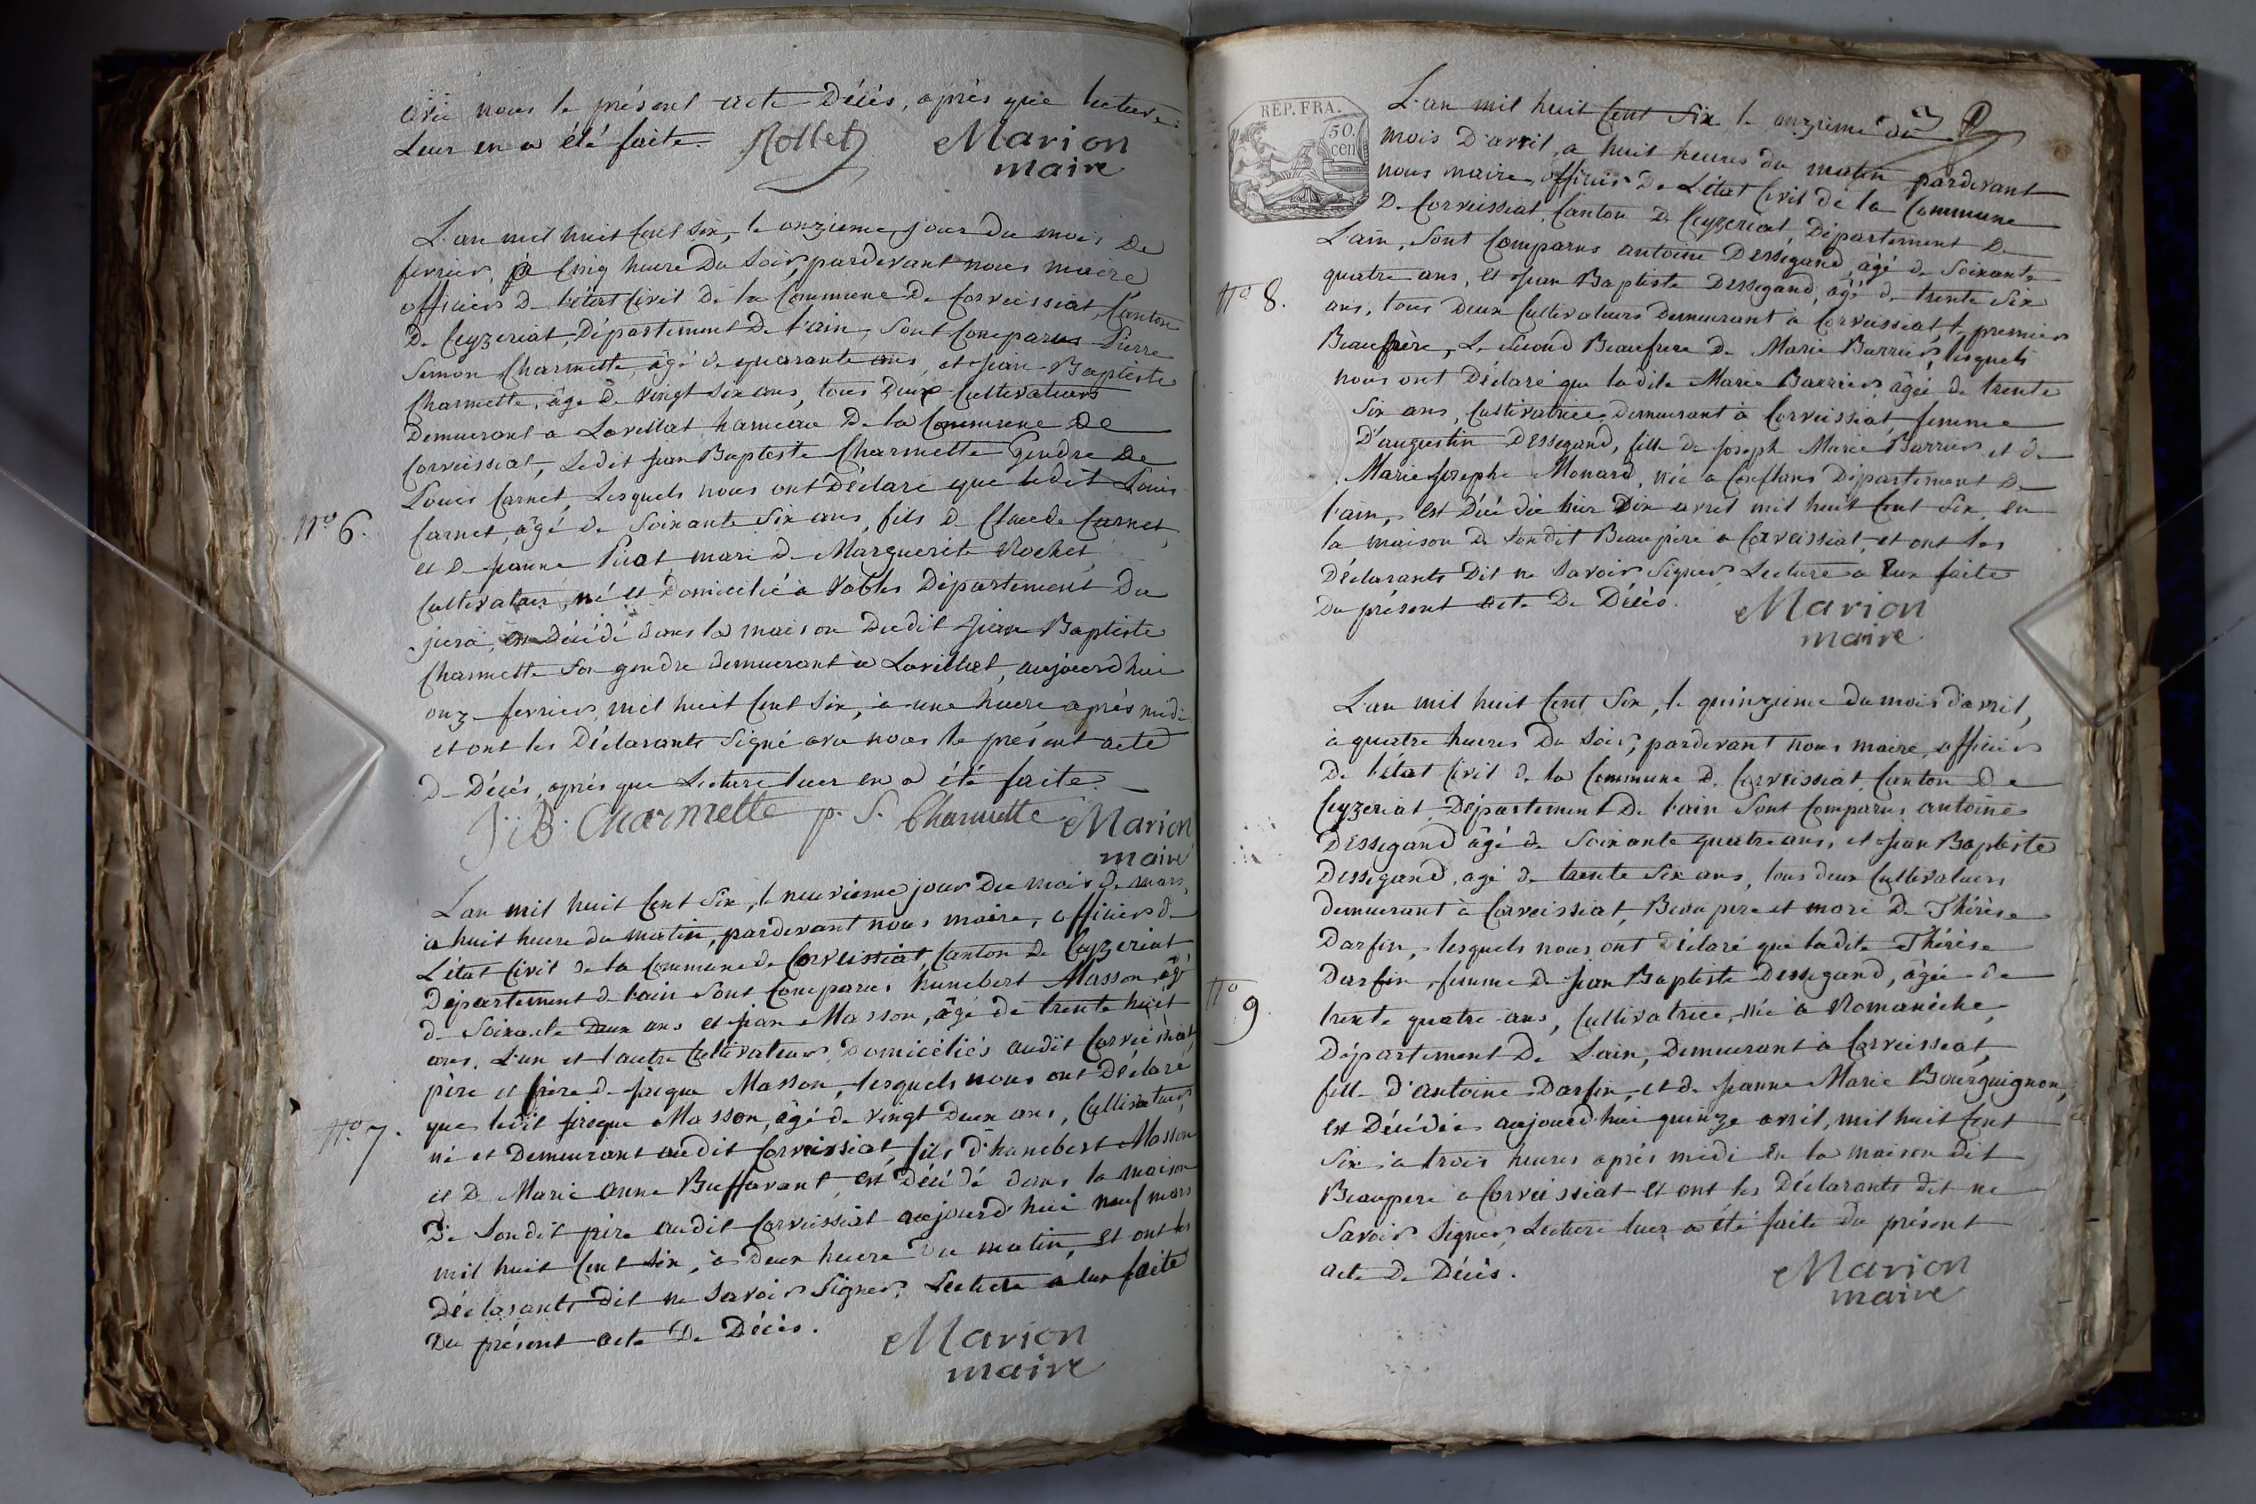 avec nous le présent acte Décès, après que lecture
Leur en a été faite. Rollet Marion
maire
L'an mil huit Cent Six, le onzieme jour du mois De
fevrier, à Cinq heure Du Soir, pardevant nous maire
officiers De l'état Civil de la Commune De Corveissiat, Canton
De Ceyzeriat, Département De l'ain, Sont Comparus Pierre
Simon Charmette, âgé de quarante ans, et jean Baptiste
Charmette, âgé de vingt six ans, tous deux Cultivateurs
Demeurant a Lavillat hameau De la Commune De
Corveissiat, Ledit jean Baptiste Charmette Gendre De
Louis Carnet, Lesquels nous ont Déclaré que ledit Louis
N° 6. Carnet, âgé de Soixante Six ans, fils De Claude Carnet,
et De jeanne Picot, mari De Marguerite Rochet,
Cultivateur, né et Domicilié à vobles Département Du
jura, est Décédé dans la maison Dudit jean Baptiste
Charmette Son gendre demeurant à Lavillat, aujourdhui
onze fevrier, mil huit Cent Six, à une heure après midi
et ont les Déclarants Signé avec nous le présent acte
De Décès, après que Lecture leur en a été faite.
J. B. Charmette p. S. Charmette Marion
maire
L'an mil huit Cent Six, le neuvieme jour Du mois De mars,
à huit heure du matin, pardevant nous maire, officiers de
L'état Civil de la Commune de Corveissiat, Canton De Ceyzeriat
Département De l'ain Sont Comparus humbert Masson, âgé
de Soixante Deux ans et jean Masson, âgé de trente huit
ans, L'un et l'autre Cultivateurs, Domiciliés audit Corveissiat,
père et frère de Masson, lesquels nous ont Déclaré
N° 7. que ledit Masson, âgé de vingt deux ans, Cultivateur,
né et Demeurant audit Corveissiat, fils D'humbert Masson
et De Marie Anne Buffavant, est Décédé dans la maison
De Sondit père audit Corveissiat aujourd'hui neuf mars
mil huit Cent Six, à deux heure Du matin, et ont les
Déclarants dit ne Savoir Signer, Lecture a leur faite
Du présent acte De Décès.
Marion
maire
REP. FRA.
50.
cen
L'an mil huit Cent Six le onzieme du
mois D'avril, a huit heures du matin pardevant
nous maire, officiers De L'état Civil de la Commune
De Corveissiat, Canton De Ceyzeriat, Département De
L'ain, Sont Comparus antoine Dessegand, âgé de Soixante
quatre ans, et jean Baptiste Dessegand, âgé de trente Six
N° 8. ans, tous deux Cultivateurs Demeurant à Corveissiat, le premier
Beaupère, Le Second Beaufrere De Marie Barrier, lesquels
nous ont Déclaré que ladite Marie Barrier, âgée de trente
Six ans, Cultivatrice demeurant à Corveissiat, femme
D'augustin Dessegand, fille de joseph Marie Barrier et de
Marie josephe Monard, née a Conflans Département De
l'ain, est Décédée hier Dix avril mil huit Cent Six, en
la maison De Sondit Beaupère a Corveissiat, et ont les
Déclarants Dit ne Savoir Signer, Lecture a leur faite
Du présent acte De Décès. Marion
maire
L'an mil huit Cent Six, le quinzieme du mois d'avril,
à quatre heures Du Soir, pardevant nous maire, officiers
De l'état Civil de la Commune de Corveissiat, Canton De
Ceyzeriat, Département De l'ain Sont Comparus antoine
Dessegand âgé de Soixante quatre ans, et jean Baptiste
Dessegand, âgé de trente Six ans, tous deux Cultivateurs
Demeurant à Corveissiat, Beau pere et mari De Thérèse
Darfin, lesquels nous ont Déclaré que ladite Thérèse
Darfin, femme de jean Baptiste Dessegand, âgée de
N° 9 trente quatre ans, Cultivatrice, née à Romanèche,
Département De L'ain, Demeurant à Corveissiat,
fille D'antoine Darfin, et de jeanne Marie Bourguignon,
est Décédée aujourd'hui quinze avril, mil huit Cent
Six, à trois heures après midi en la maison dit
Beaupere a Corveissiat et ont les Déclarants dit ne
Savoir Signer, Lecture leur a été faite du présent
acte De Décès. Marion
maire